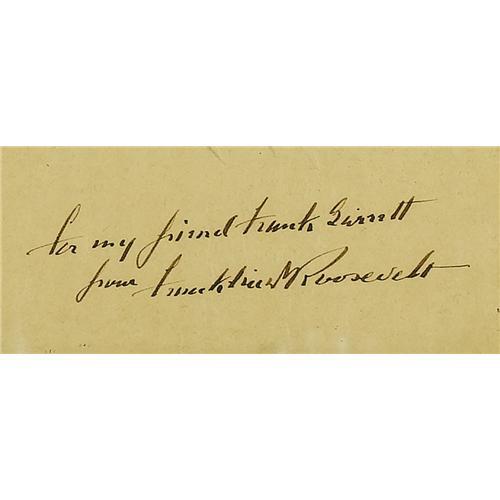 for my friend Frank
from Franklin D Roosevelt